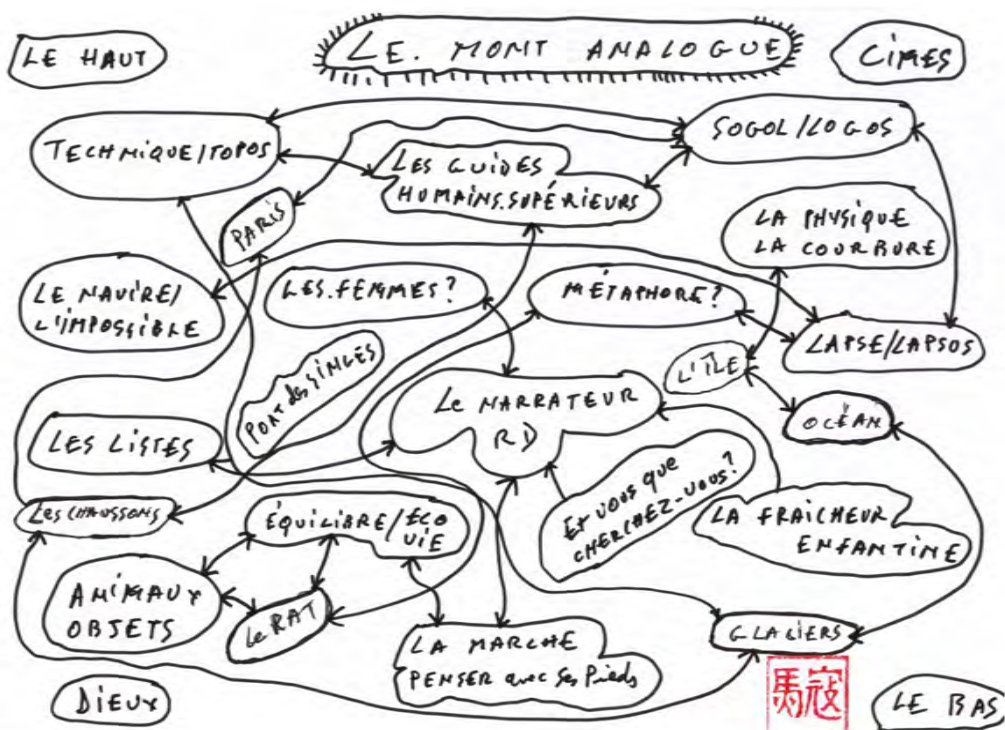 LE HAUT
LE. MONT ANALOGUE
CIMES
TECHNIQUE/TOPOS
LES GUIDES
HUMAINS.SUPÉRIEURS
SOGOL/LOGOS
PARIS
LA PHYSIQUE
LA COURBURE
LE NAVIRE/
L'IMPOSSIBLE
LES.FEMMES?
MÉTAPHORE?
LAPSE/LAPSOS
PORT des SINGES
L'ÎLE
Le NARRATEUR
RD
OCÉAN
LES LISTES
LES CHAUSSONS
ÉQUILIBRE/ÉCO
VIE
ET VOUS QUE
CHERCHEZ-VOUS?
LA FRAÎCHEUR
ENFANTINE
ANIMAUX
OBJETS
Le RAT
LA MARCHE
PENSER avec Ses Pieds
GLACIERS
DIEUX
馬寇
LE BAS